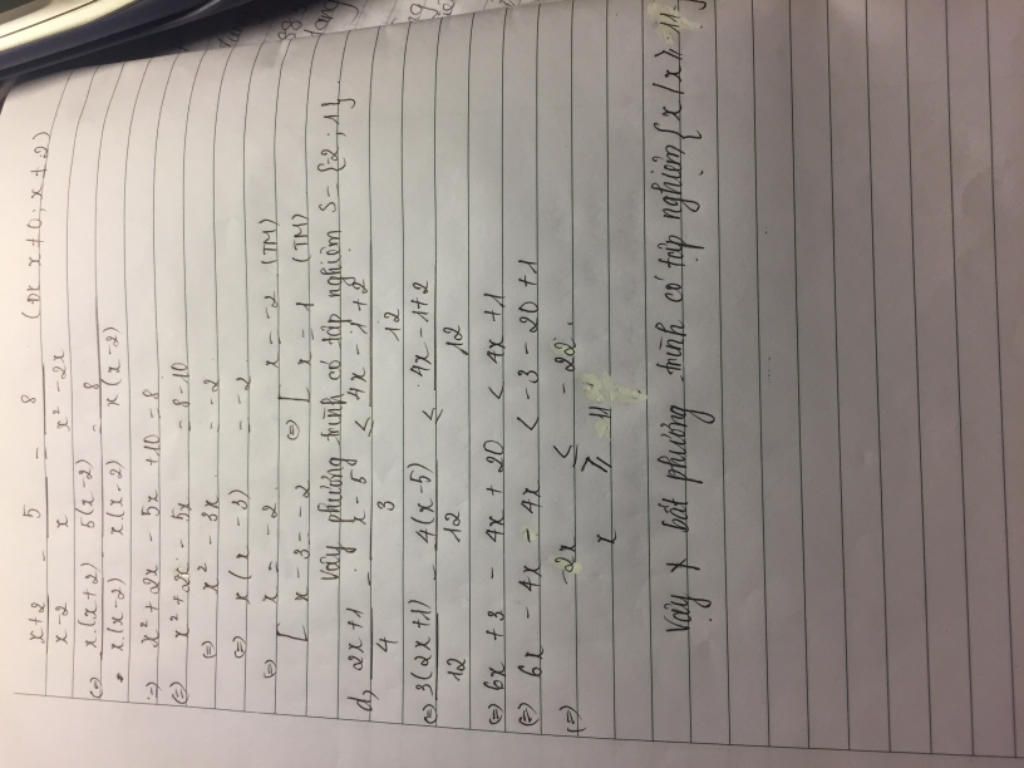 x+2/x-2 - 5/x = 8/x²-2x (ĐK x≠0, x≠2)
(=) x(x+2)/x(x-2) - 5(x-2)/x(x-2) = 8/x(x-2)
=) x²+2x - 5x +10 = 8
(=) x²+2x - 5x = 8-10
(=) x² - 3x = -2
(=) x(x-3) = -2
(=) [ x = -2 (=) [ x = -2 (TM)
x-3 = -2 x = 1 (TM)
Vậy phương trình có tập nghiệm S = {-2; 1}
d, 2x+1/4 - x-5/3 ≤ 4x-1+2/12
(=) 3(2x+1)/12 - 4(x-5)/12 ≤ 4x-1+2/12
(=) 6x+3 - 4x+20 < 4x+1
(=) 6x - 4x - 4x < -3-20+1
(=) -2x ≤ -22.
x ≥ 11
Vậy bất phương trình có tập nghiệm {x/x ≥ 11}